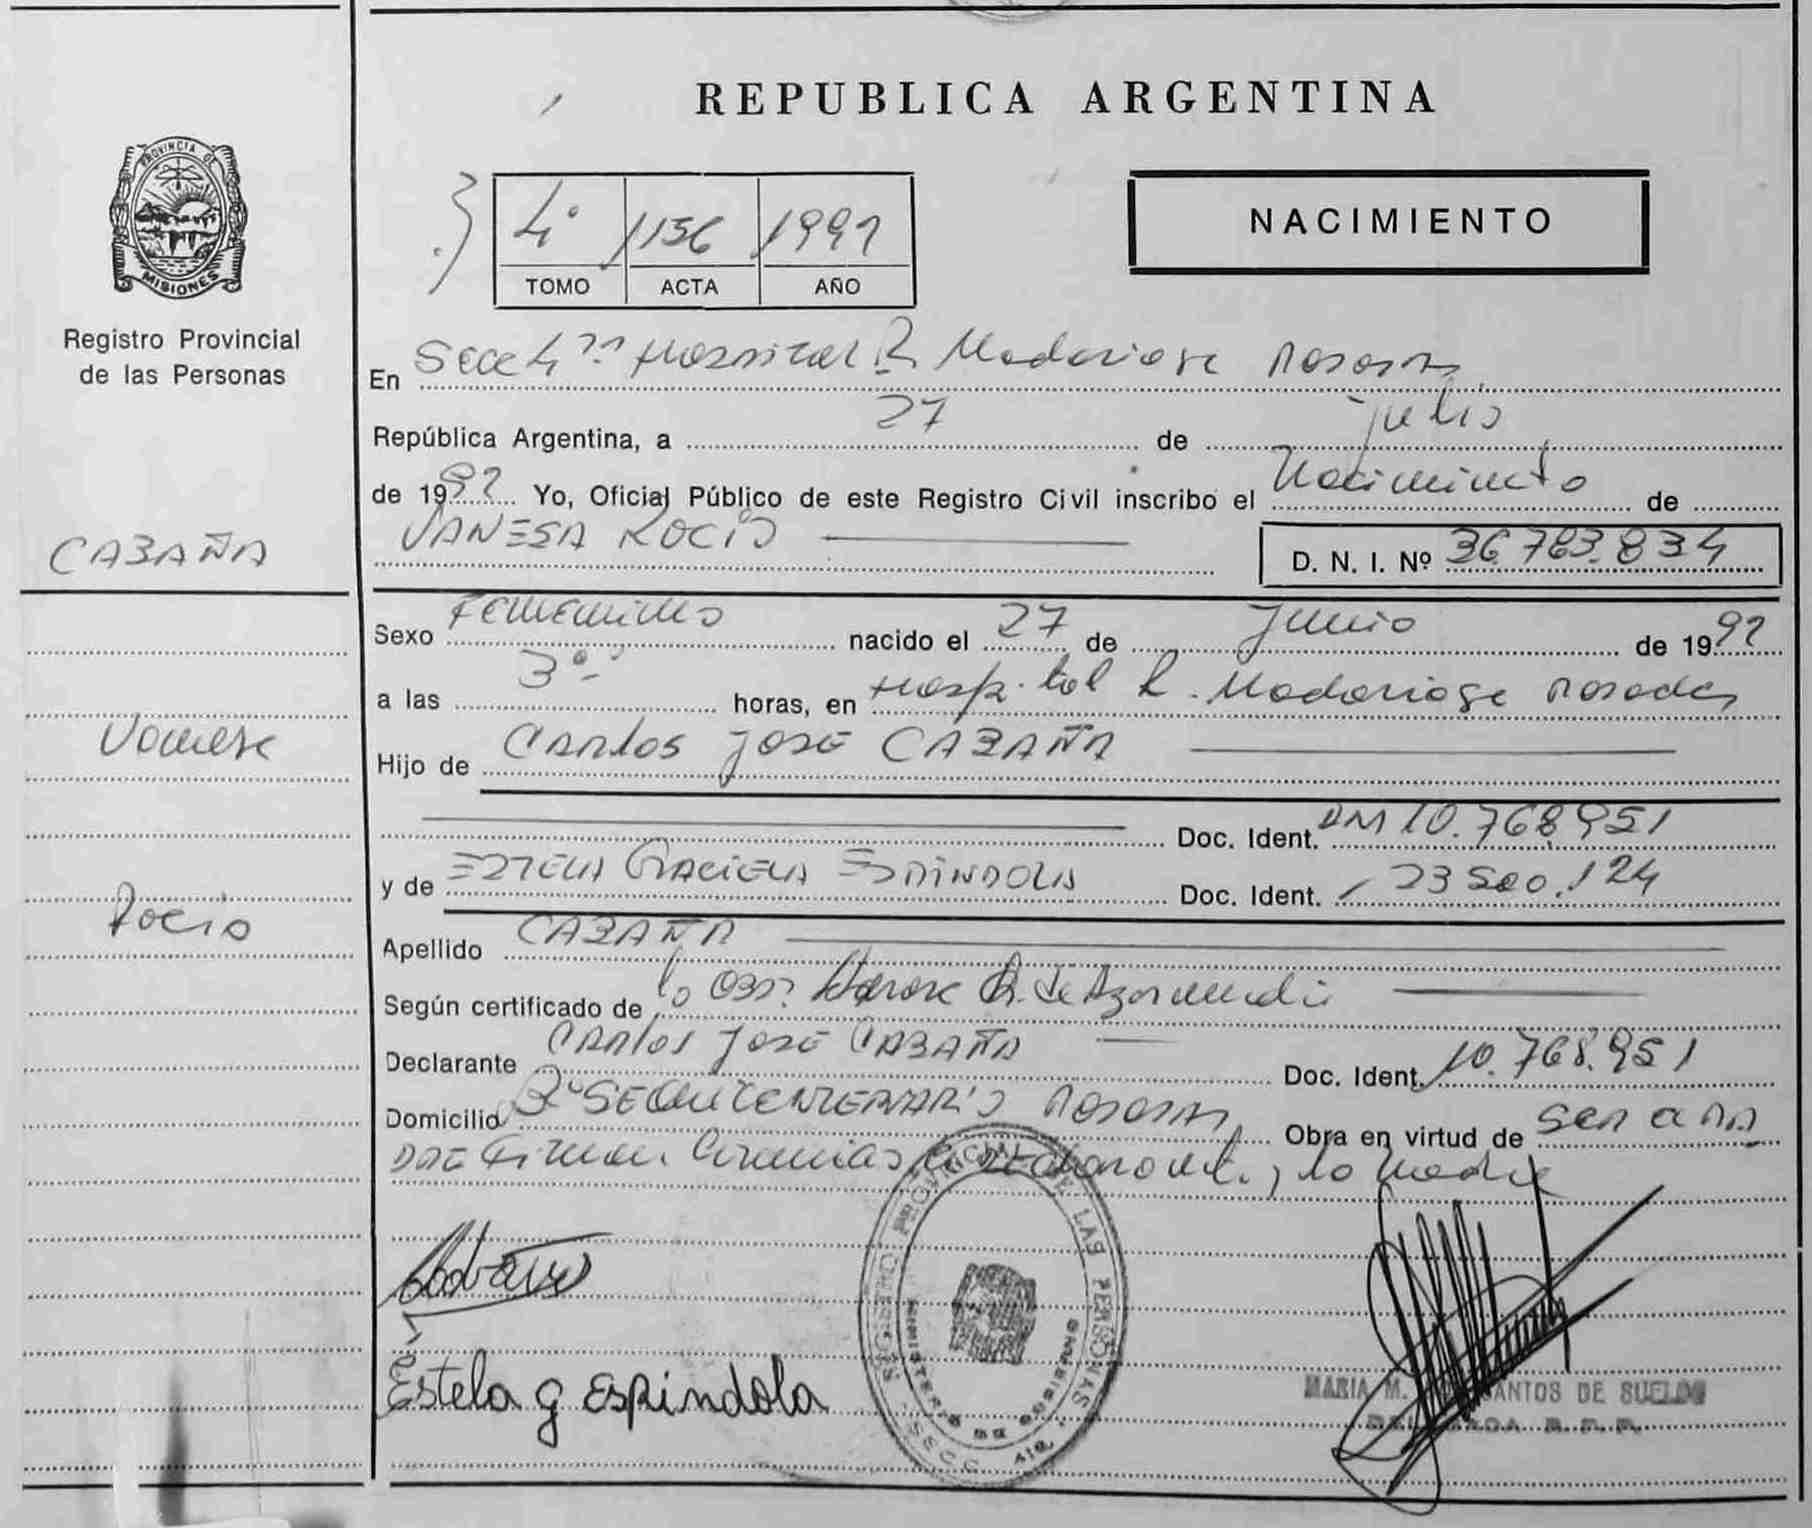 REPUBLICA ARGENTINA
PROVINCIA DE
MISIONES
Registro Provincial
de las Personas
4º 1156 1992
TOMO ACTA AÑO
NACIMIENTO
En Secc 4ª Hospital R. Madariaga Posadas
República Argentina, a 27 de julio
de 1992 Yo, Oficial Público de este Registro Civil inscribo el Nacimiento de
VANESA ROCIO
D. N. I. Nº 36.783.834
CABAÑA
Vanesa
Rocio
Sexo Femenino nacido el 27 de Junio de 1992
a las 3º horas, en Hospital R. Madariaga Posadas
Hijo de Carlos José CABAÑA
Doc. Ident. DNI 10.768.951
y de ESTELA GRACIELA ESPINDOLA Doc. Ident. 23.500.124
Apellido CABAÑA
Según certificado de la Obst.
Declarante Carlos José CABAÑA Doc. Ident. 10.768.951
Domicilio Bº SESQUICENTENARIO POSADAS Obra en virtud de ser a
firman el declarante, la madre
Estela g Espíndola
REGISTRO PROVINCIAL DE LAS PERSONAS
MINISTERIO DE GOBIERNO
SECC. 4ta
MARIA M. SANTOS DE SUELDO
DELEGADA R. P. P.